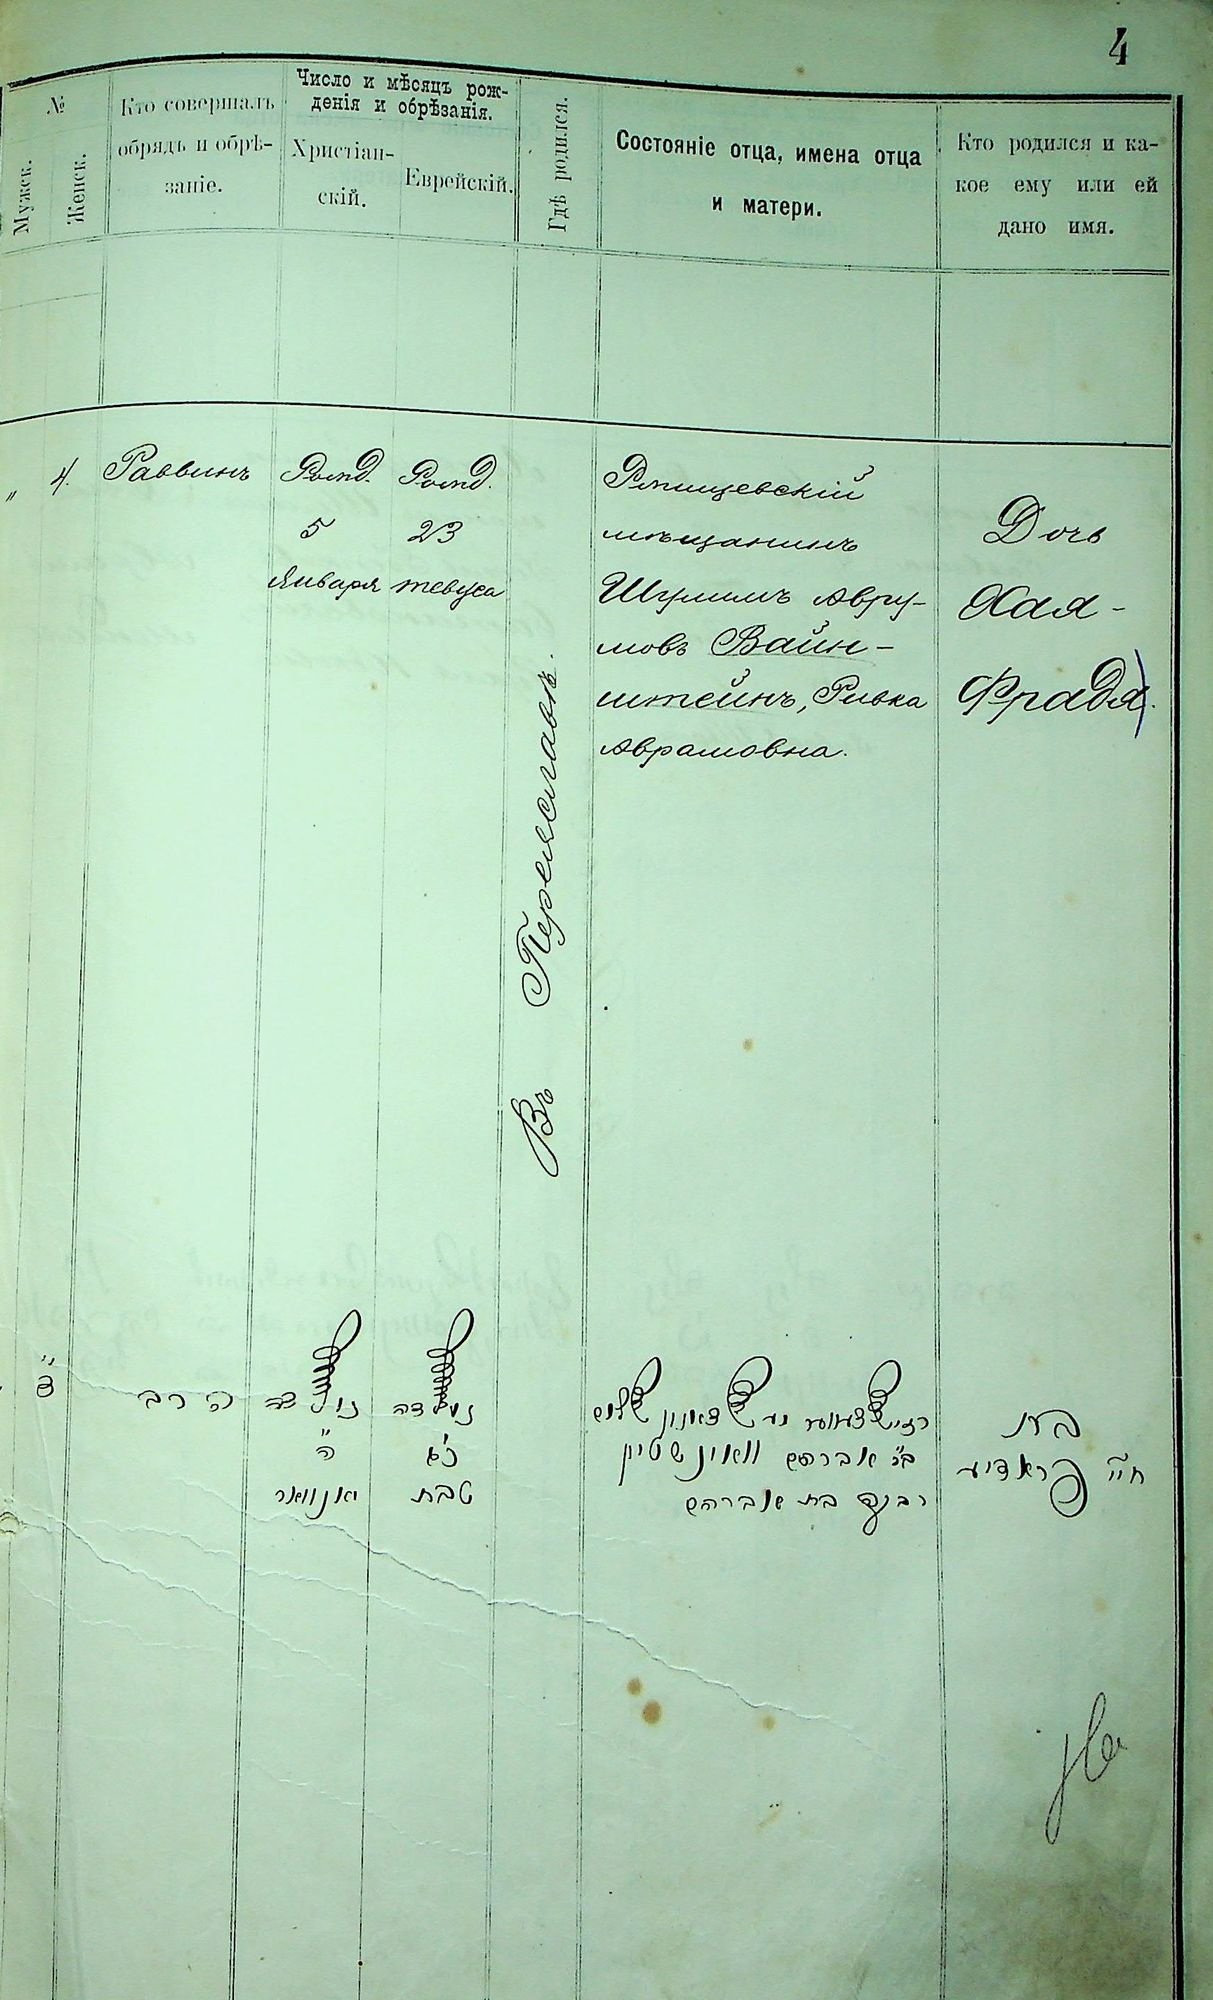 4
№
Мужск.
Женск.
Кто совершалъ
обрядъ и обрѣ-
заніе.
Число и мѣсяцъ рож-
денія и обрѣзанія.
Христіан-
скій.
Еврейскій.
Гдѣ родился.
Состояніе отца, имена отца
и матери.
Кто родился и ка-
кое ему или ей
дано имя.
" 4. Раввинъ
Рожд.
5
Января
Рожд.
23
тевуса
Въ Переяславѣ.
Ржищевскій
мѣщанинъ
Шулимъ Авру-
мовъ Вайн-
штейнъ, Ривка
Аврамовна.
Дочь
Хая-
Фрадя.
הרב
נולדה
ה"
יאנוואר
נולדה
כ"ג
טבת
שלום
ב"ר אברהם וואינשטיין
רבקה בת אברהם
בת
חי' פראדיע